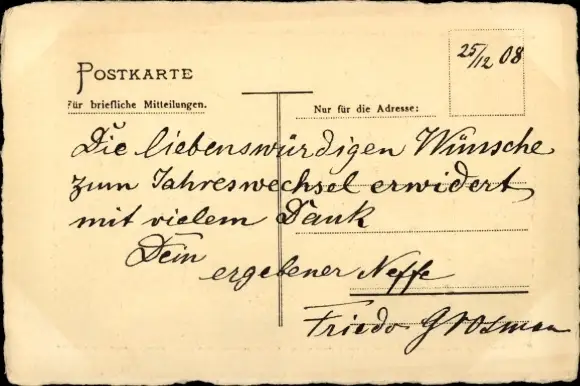 25/12 08
POSTKARTE
Für briefliche Mitteilungen.
Nur für die Adresse:
Die liebenswürdigen Wünsche
zum Jahreswechsel erwidert
mit vielem Dank
Dein
ergebener Neffe